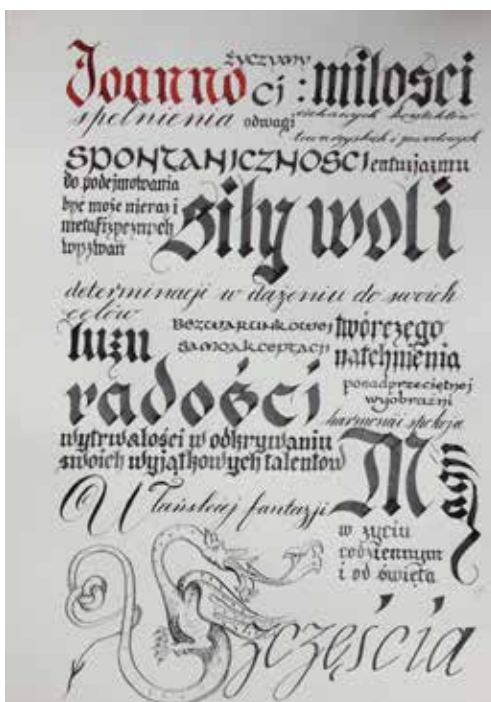 Joanno życzymy
Ci : miłości
spełnienia odwagi ciekawych kontaktów
towarzyskich i zawodowych
SPONTANICZNOŚCI entuzjazmu
do podejmowania
być może nieraz i
metafizycznych
wyzwań
siły woli
determinacji w dążeniu do swoich
celów
luzu
BEZWARUNKOWEJ
SAMOAKCEPTACJI
twórczego
natchnienia
radości
ponadprzeciętnej
wyobraźni
harmonii spokoju
wytrwałości w odkrywaniu
swoich wyjątkowych talentów
Ułańskiej fantazji
Magii
w życiu
codziennym
i od święta
Szczęścia